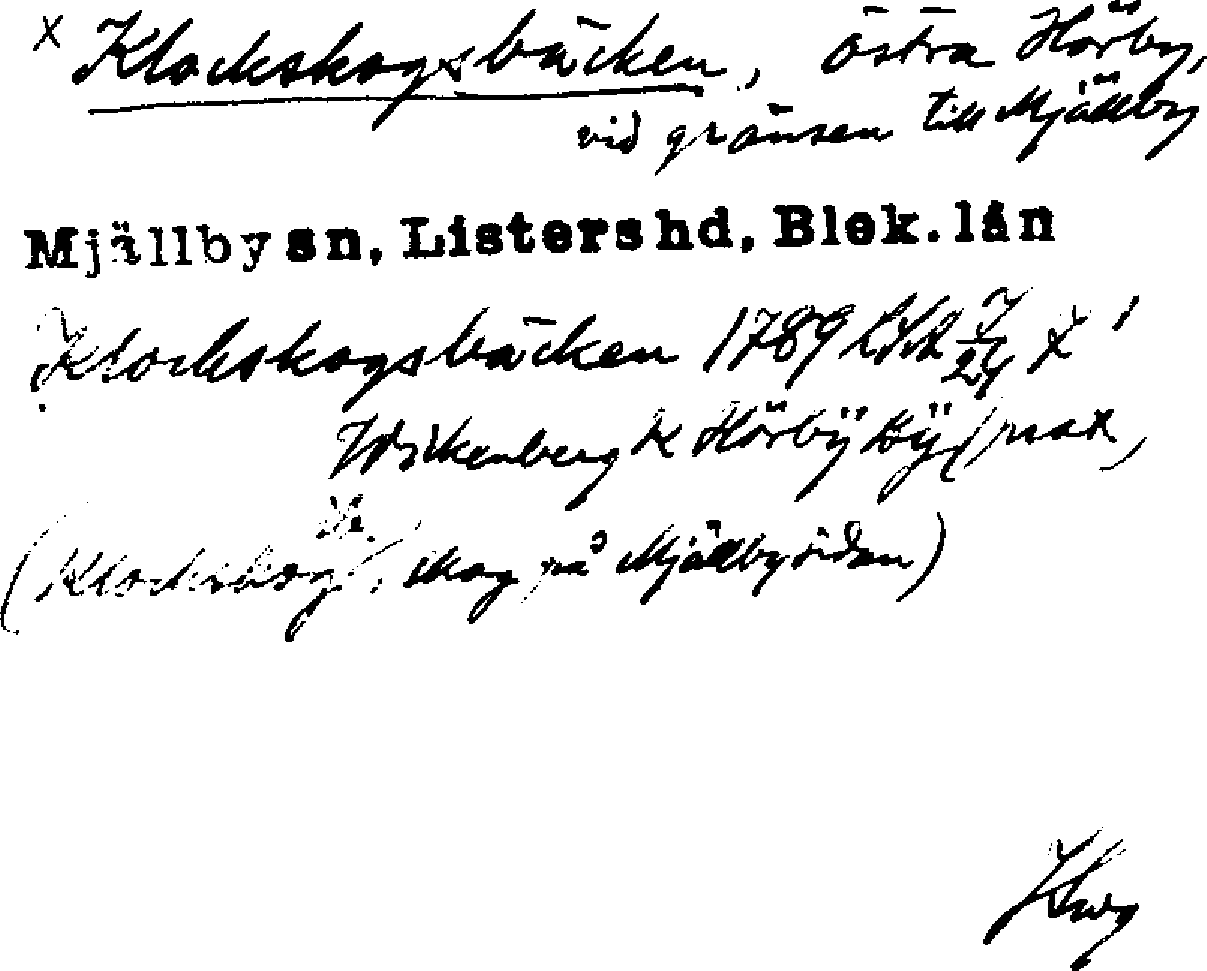 x Klockskogsbäcken, östra Hörby,
vid gränsen till Mjällby
Mjällby sn, Listers hd, Blek. län
Klockskogsbäcken 1789
Wickenberg k Hörbÿ Bÿ
(Klockskog, skog på Mjällbysidan)